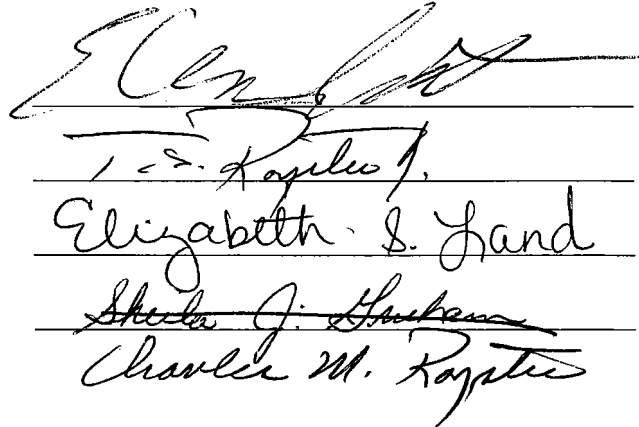 T. S. Royster Jr.
Elizabeth S. Land
Sheila J. Graham
Charles M. Royster